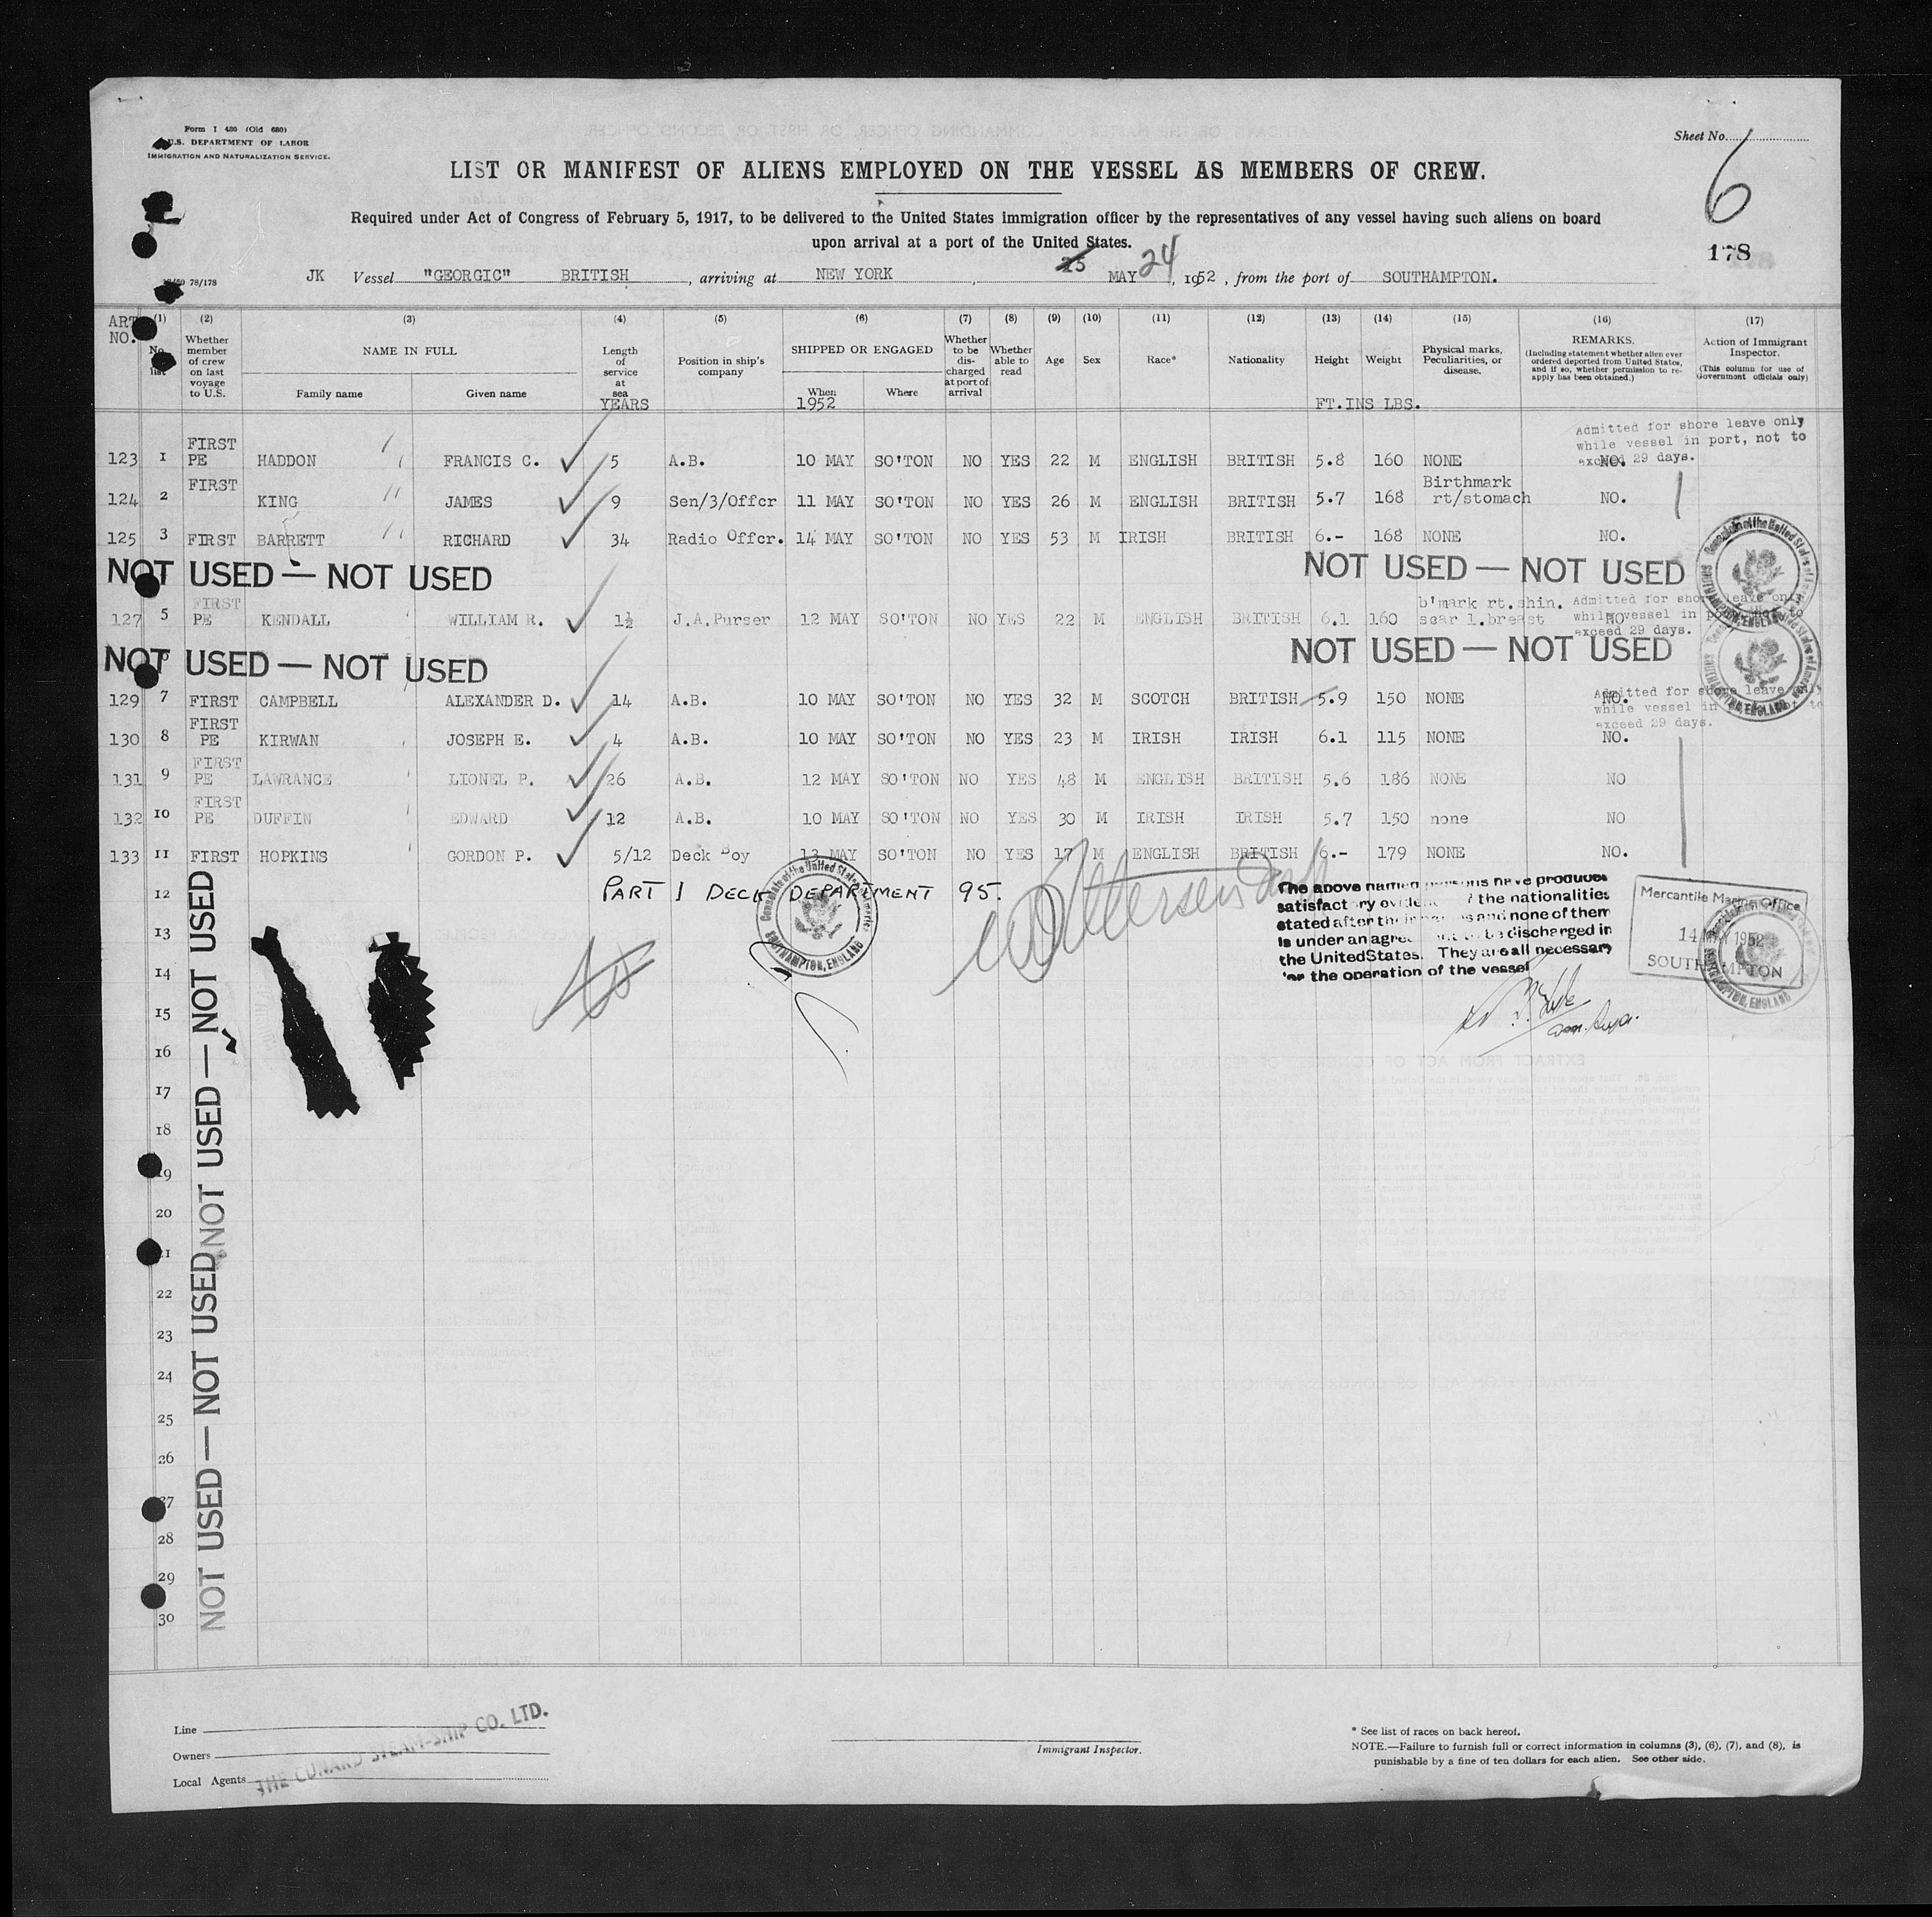 Form I 480 (Old 680)
U.S. DEPARTMENT OF LABOR
IMMIGRATION AND NATURALIZATION SERVICE.
Sheet No.
6
178
LIST OR MANIFEST OF ALIENS EMPLOYED ON THE VESSEL AS MEMBERS OF CREW.
Required under Act of Congress of February 5, 1917, to be delivered to the United States immigration officer by the representatives of any vessel having such aliens on board
upon arrival at a port of the United States.
78/178 JK Vessel "GEORGIC" BRITISH, arriving at NEW YORK, 25 MAY 24, 1952, from the port of SOUTHAMPTON.
ART NO. (1) (2) (3) (4) (5) (6) (7) (8) (9) (10) (11) (12) (13) (14) (15) (16) (17)
No. list
Whether member of crew on last voyage to U.S.
NAME IN FULL
Family name Given name
Length of service at sea
YEARS
Position in ship's company
SHIPPED OR ENGAGED
When Where
1952
Whether to be discharged at port of arrival
Whether able to read
Age Sex Race* Nationality Height Weight
FT.INS LBS.
Physical marks, Peculiarities, or disease.
REMARKS.
(Including statement whether alien ever ordered deported from United States, and if so, whether permission to re-apply has been obtained.)
Action of Immigrant Inspector.
(This column for use of Government officials only)
Admitted for shore leave only
while vessel in port, not to
exceed 29 days.
123 1 FIRST PE HADDON FRANCIS C. 5 A.B. 10 MAY SO'TON NO YES 22 M ENGLISH BRITISH 5.8 160 NONE NO.
124 2 FIRST KING JAMES 9 Sen/3/Offcr 11 MAY SO'TON NO YES 26 M ENGLISH BRITISH 5.7 168 Birthmark rt/stomach NO.
125 3 FIRST BARRETT RICHARD 34 Radio Offcr. 14 MAY SO'TON NO YES 53 M IRISH BRITISH 6.- 168 NONE NO.
NOT USED — NOT USED NOT USED — NOT USED
127 5 FIRST PE KENDALL WILLIAM R. 1½ J.A.Purser 12 MAY SO'TON NO YES 22 M ENGLISH BRITISH 6.1 160 b'mark rt.shin. scar l.breast NO
Admitted for shore leave only
while vessel in port, not to
exceed 29 days.
NOT USED — NOT USED NOT USED — NOT USED
129 7 FIRST CAMPBELL ALEXANDER D. 14 A.B. 10 MAY SO'TON NO YES 32 M SCOTCH BRITISH 5.9 150 NONE NO.
Admitted for shore leave only
while vessel in port, not to
exceed 29 days.
130 8 FIRST PE KIRWAN JOSEPH E. 4 A.B. 10 MAY SO'TON NO YES 23 M IRISH IRISH 6.1 115 NONE NO.
131 9 FIRST PE LAWRANCE LIONEL P. 26 A.B. 12 MAY SO'TON NO YES 48 M ENGLISH BRITISH 5.6 186 NONE NO
132 10 FIRST PE DUFFIN EDWARD 12 A.B. 10 MAY SO'TON NO YES 30 M IRISH IRISH 5.7 150 none NO
133 11 FIRST HOPKINS GORDON P. 5/12 Deck Boy 13 MAY SO'TON NO YES 17 M ENGLISH BRITISH 6.- 179 NONE NO.
12 PART 1 DECK DEPARTMENT 95.
The above named persons have produced
satisfactory evidence of the nationalities
stated after their names and none of them
is under an agreement to be discharged in
the United States. They are all necessary
for the operation of the vessel
Mercantile Marine Office
14 MAY 1952
SOUTHAMPTON
Consulate of the United States of America
SOUTHAMPTON, ENGLAND
13
14
15
16
17
18
19
20
21
22
23
24
25
26
27
28
29
30
NOT USED — NOT USED — NOT USED — NOT USED — NOT USED — NOT USED
Line
Owners
Local Agents
THE CUNARD STEAM-SHIP CO. LTD.
Immigrant Inspector.
* See list of races on back hereof.
NOTE.—Failure to furnish full or correct information in columns (3), (6), (7), and (8), is
punishable by a fine of ten dollars for each alien. See other side.